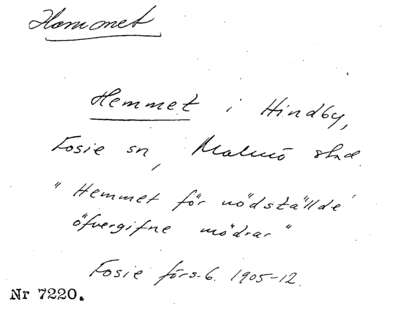 Hemmet
Hemmet i Hindby,
Fosie sn, Malmö stad.
"Hemmet för nödställde
öfvergifne mödrar"
Fosie förs.b. 1905-12.
Nr 7220.